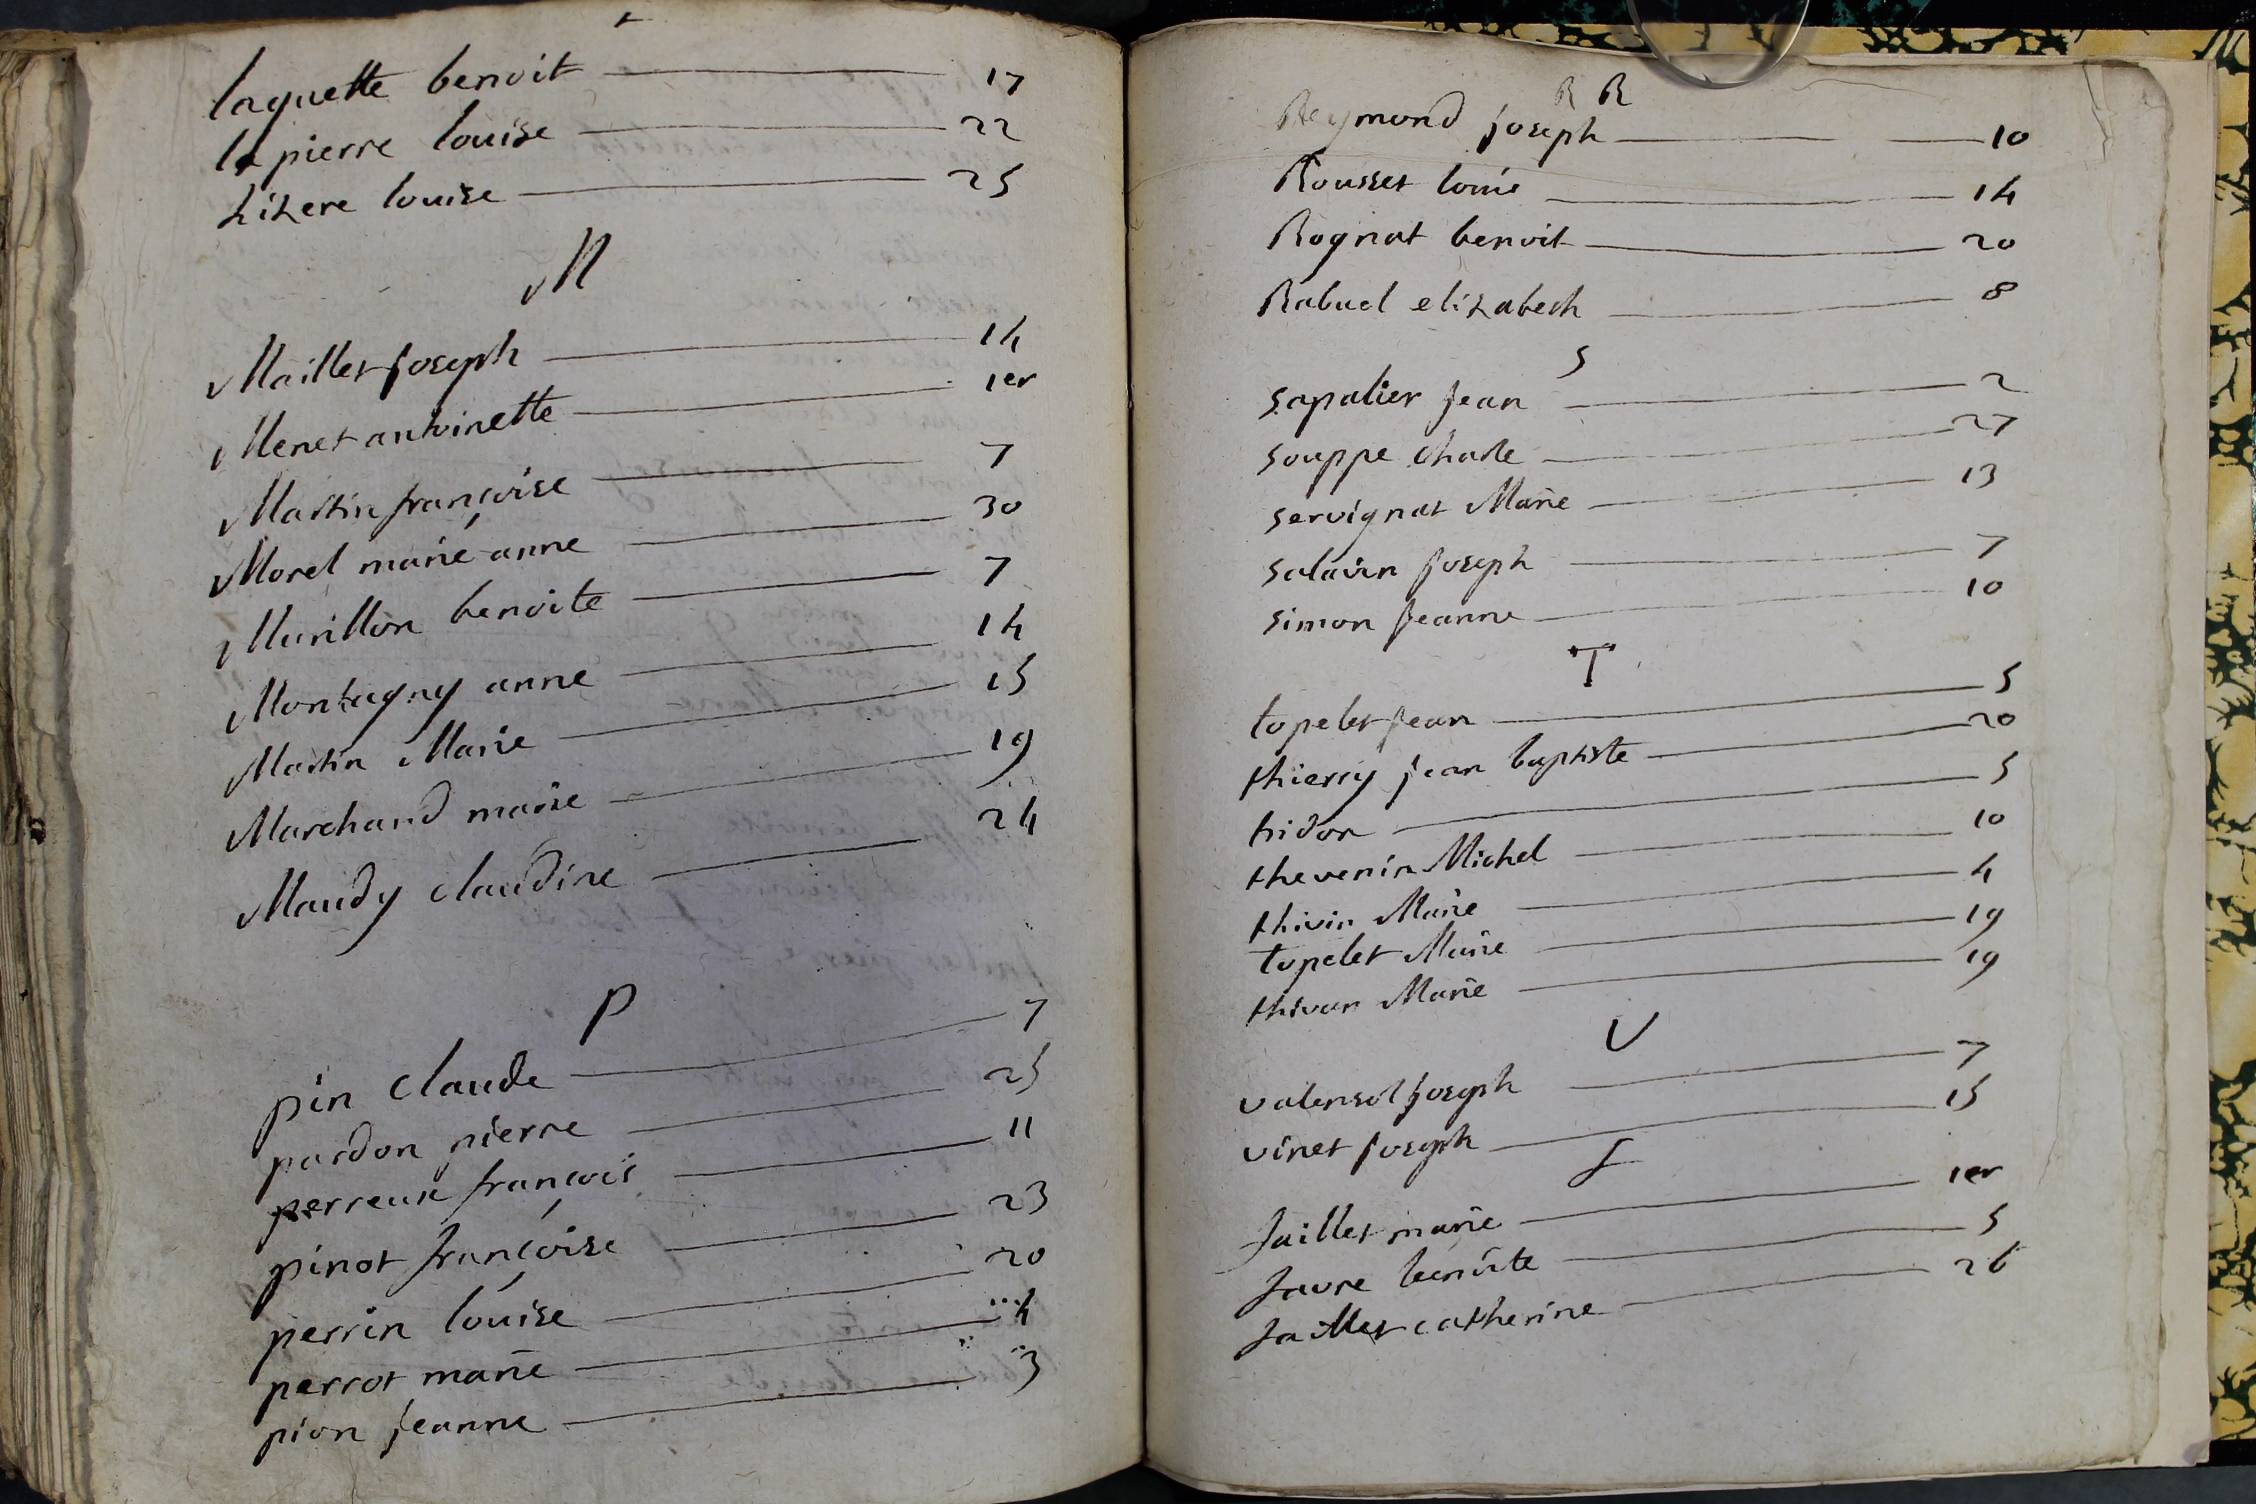 laguette benoit 17
lapierre louise 22
Lizere louise 25
M
Maillet joseph 14
Menet antoinette 1er
Martin françoise 7
Morel marie anne 30
Murillon benoite 7
Montagny anne 14
Martin Marie 15
Marchand marie 19
Maudy claudine 24
P
pin claude 7
pardon pierre 25
perreux françois 11
pinot françoise 23
perrin louise 20
perrot marie 4
pion jeanne 3
R R
Reymond joseph 10
Rousset louise 14
Rognat benoit 20
Rabuel elizabeth 8
S
sapalier jean 2
souppe charle 27
servignat Marie 13
salavin joseph 7
simon jeanne 10
T
topelet jean 5
thierry jean baptiste 20
tridon 5
thevenin Michel 10
thivin Marie 4
topelet Marie 19
thivan Marie 19
V
valensol joseph 7
vinet joseph 15
J
Jaillet marie 1er
Javre benoite 5
Jaillet catherine 26